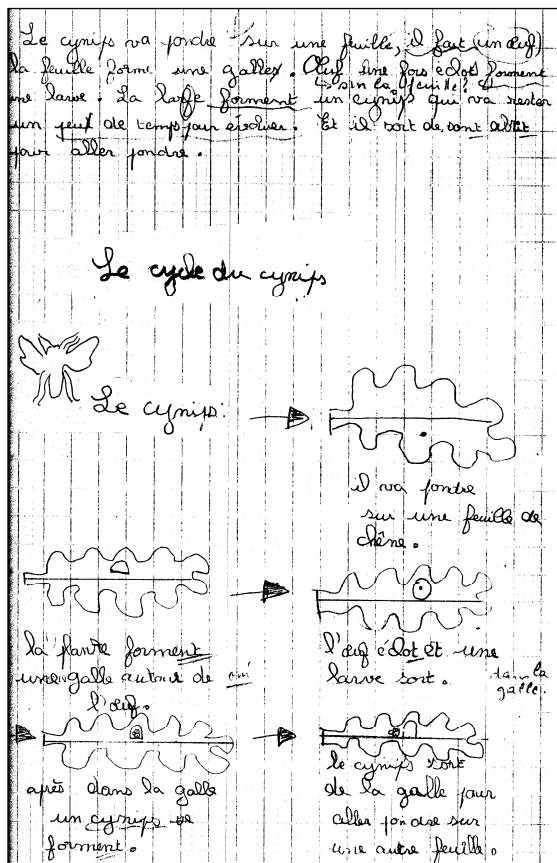 Le cynips va pondre sur une feuille, il fait (un œuf)
la feuille forme une galles. Œuf une fois éclot forment
↳ sur la feuille?
une larve. La larve forment un cynips qui va rester
un peux de temps pour évoluer. Et il sort de sont abit
pour aller pondre.
Le cycle du cynips
Le cynips:
il va pondre
sur une feuille de
chêne.
la plante forment
une galle autour de
l'œuf.
l'œuf éclot et une
larve sort.
dans la
galle.
après dans la galle
un cynips se
forment.
le cynips sort
de la galle pour
aller pondre sur
une autre feuille.